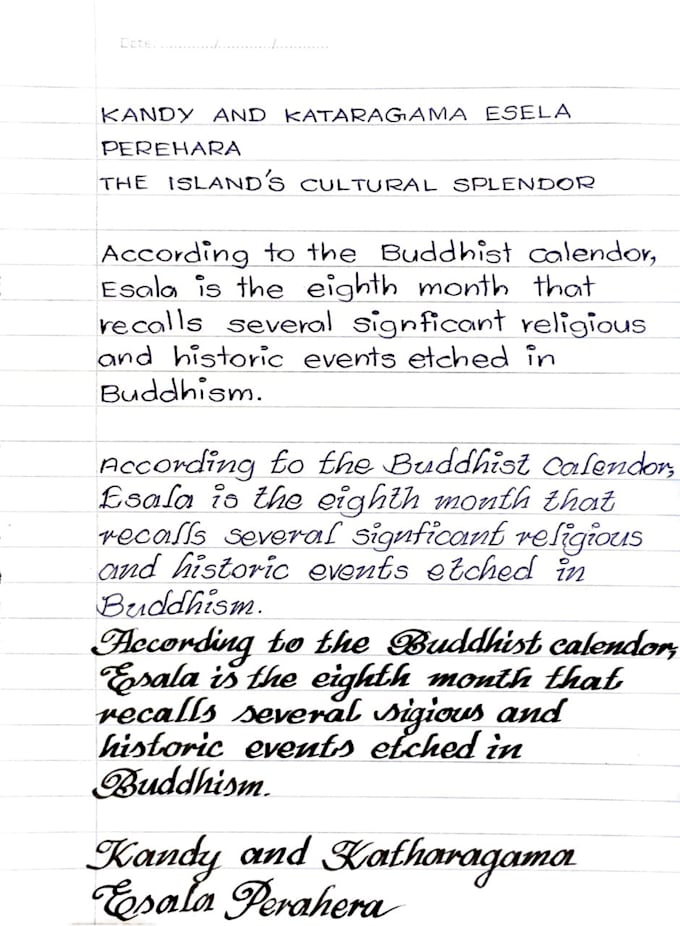 Date: ............/............../..............
KANDY AND KATARAGAMA ESELA
PEREHARA
THE ISLAND'S CULTURAL SPLENDOR
According to the Buddhist calendor,
Esala is the eighth month that
recalls several signficant religious
and historic events etched in
Buddhism.
According to the Buddhist calendor,
Esala is the eighth month that
recalls several signficant religious
and historic events etched in
Buddhism.
According to the Buddhist calendor,
Esala is the eighth month that
recalls several sigious and
historic events etched in
Buddhism.
Kandy and Katharagama
Esala Perahera